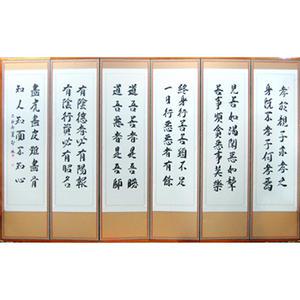 孝於親子亦孝之
身旣不孝子何孝焉
見善如渴聞惡如聾
善事須貪惡事莫樂
終身行善善猶不足
一日行惡惡自有餘
道吾善者是吾賊
道吾惡者是吾師
有陰德者必有陽報
有陰行者必有昭名
畫虎畫皮難畫骨
知人知面不知心